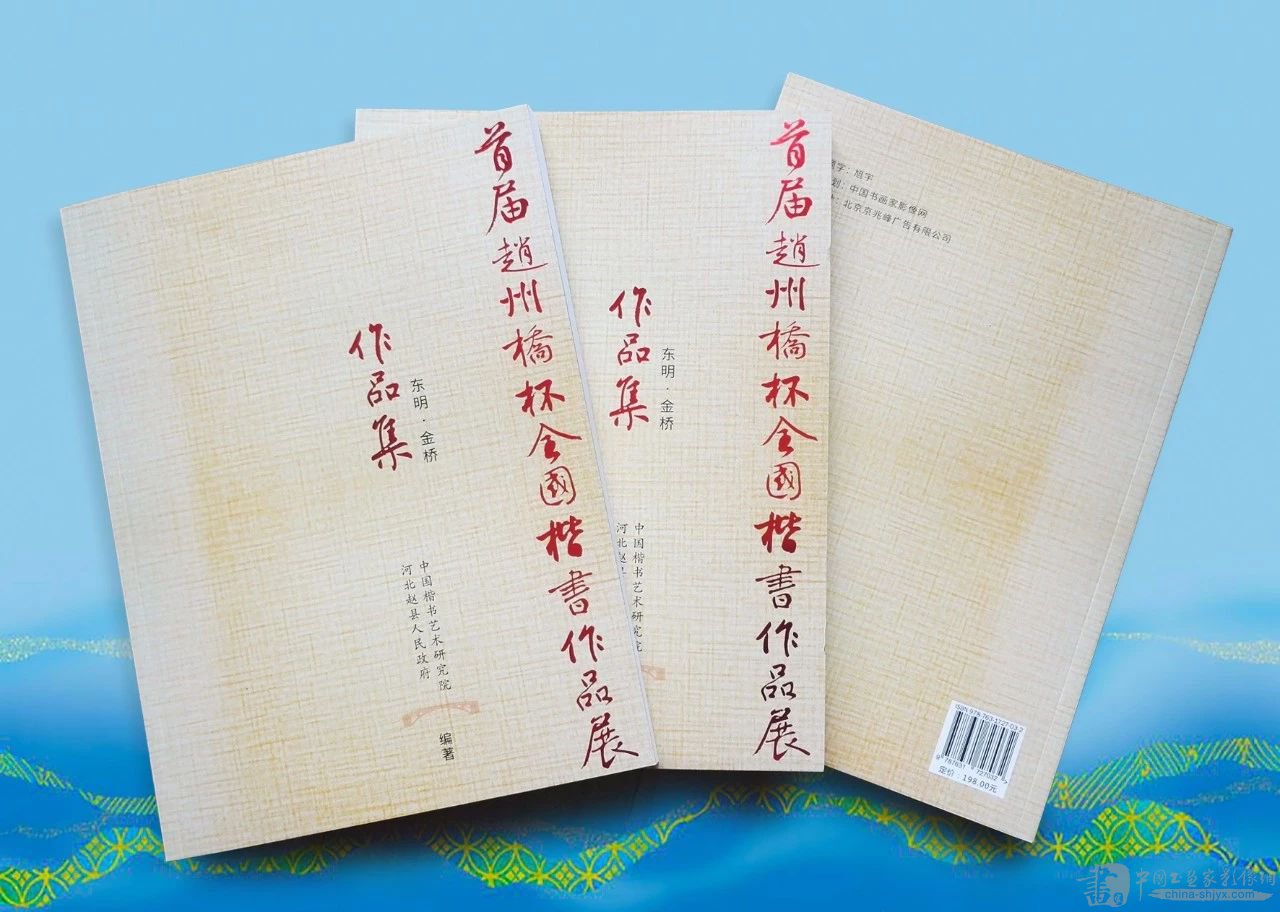 首届趙州橋杯全國楷書作品展
东明·金桥
作品集
中国楷书艺术研究院
河北赵县人民政府
编著
首届趙州橋杯全國楷書作品展
东明·金桥
作品集
中国楷书艺术研究院
河北赵
字：旭宇
划：中国书画家影像网
：北京京兆峰广告有限公司
ISBN 978-763-1727-03-2
9 787631 727032
定价：198.00元
china-shjyx.com